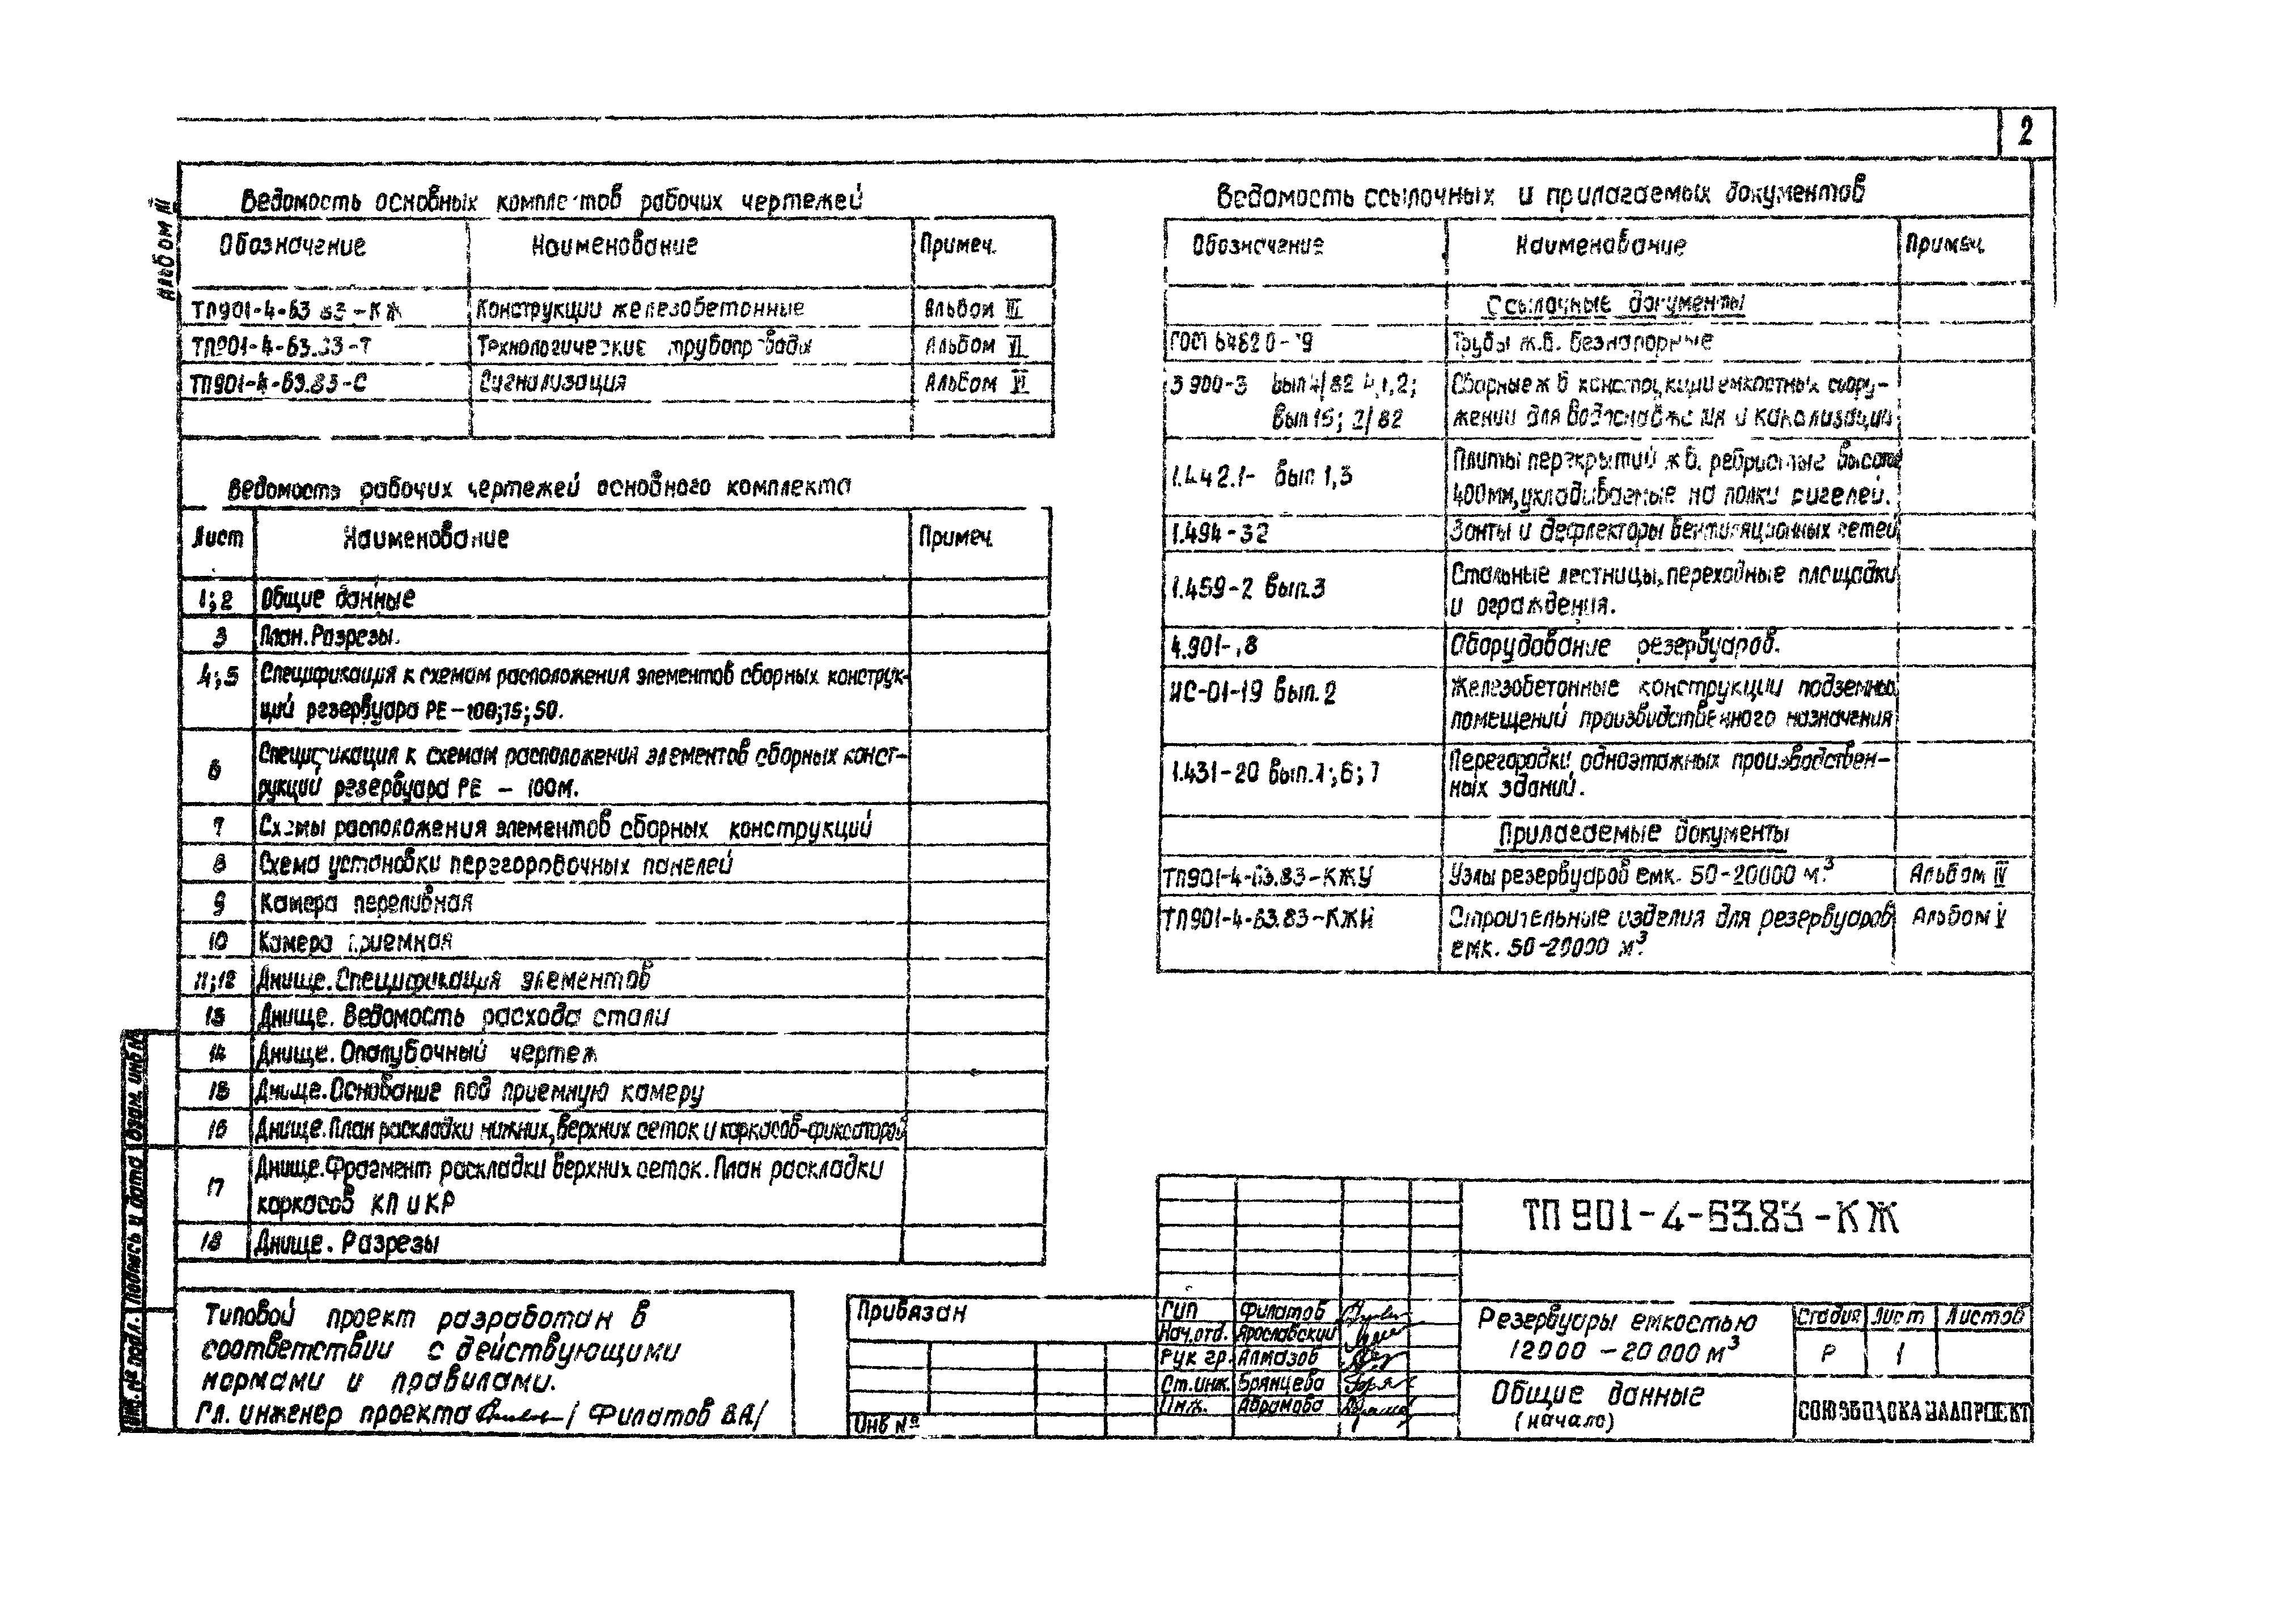 2
Альбом III
Ведомость основных комплектов рабочих чертежей
Обозначение Наименование Примеч.
ТП901-4-63.83-КЖ Конструкции железобетонные Альбом III
ТП901-4-63.83-Т Технологические трубопроводы Альбом VI
ТП901-4-63.83-С Сигнализация Альбом VI
Ведомость рабочих чертежей основного комплекта
Лист Наименование Примеч.
1;2 Общие данные
3 План. Разрезы.
4;5 Спецификация к схемам расположения элементов сборных конструк-
ций резервуара РЕ-100;75;50.
6 Спецификация к схемам расположения элементов сборных конст-
рукций резервуара РЕ - 100м.
7 Схемы расположения элементов сборных конструкций
8 Схема установки перегородочных панелей
9 Камера переливная
10 Камера приемная
11;12 Днище. Спецификация элементов
13 Днище. Ведомость расхода стали
14 Днище. Опалубочный чертеж
15 Днище. Основание под приемную камеру
16 Днище. План раскладки нижних, верхних сеток и каркасов-фиксаторов
17 Днище. Фрагмент раскладки верхних сеток. План раскладки
каркасов КП и КР
18 Днище. Разрезы
Типовой проект разработан в
соответствии с действующими
нормами и правилами.
Гл. инженер проекта /Филатов В.А/
Ведомость ссылочных и прилагаемых документов
Обозначение Наименование Примеч.
Ссылочные документы
ГОСТ Трубы ж.б. безнапорные
3.900-3 вып 4/82 ч,1,2; Сборные ж б конструкции емкостных соору-
вып 15; 2/82 жений для водоснабжения и канализации
1.442.1- вып 1,3 Плиты перекрытий ж б. ребристые высотой
400мм, укладываемые на полки ригелей.
1.494-32 Зонты и дефлекторы вентиляционных сетей
1.459-2 вып.3 Стальные лестницы, переходные площадки
и ограждения.
Оборудование резервуаров.
ИС-01-19 вып.2 Железобетонные конструкции подземных
помещений производственного назначения
1.431-20 вып.1;6;7 Перегородки одноэтажных производствен-
ных зданий.
Прилагаемые документы
ТП901-4-63.83-КЖУ Узлы резервуаров емк. 50-20000 м³. Альбом IV
ТП901-4-63.83-КЖИ Строительные изделия для резервуаров Альбом V
емк. 50-20000 м³.
ТП 901-4-63.83-КЖ
Привязан
Инв №
Гип Филатов
Нач.отд. Ярославский
Рук гр. Алмазов
Ст.инж. Брянцева
Инж. Абрамова
Резервуары емкостью
12000 - 20 000 м³
Общие данные
(начало)
Стадия Лист Листов
Р 1
СОЮЗВОДОКАНАЛПРОЕКТ
Инв. № подл. Подпись и дата Взам. инв №